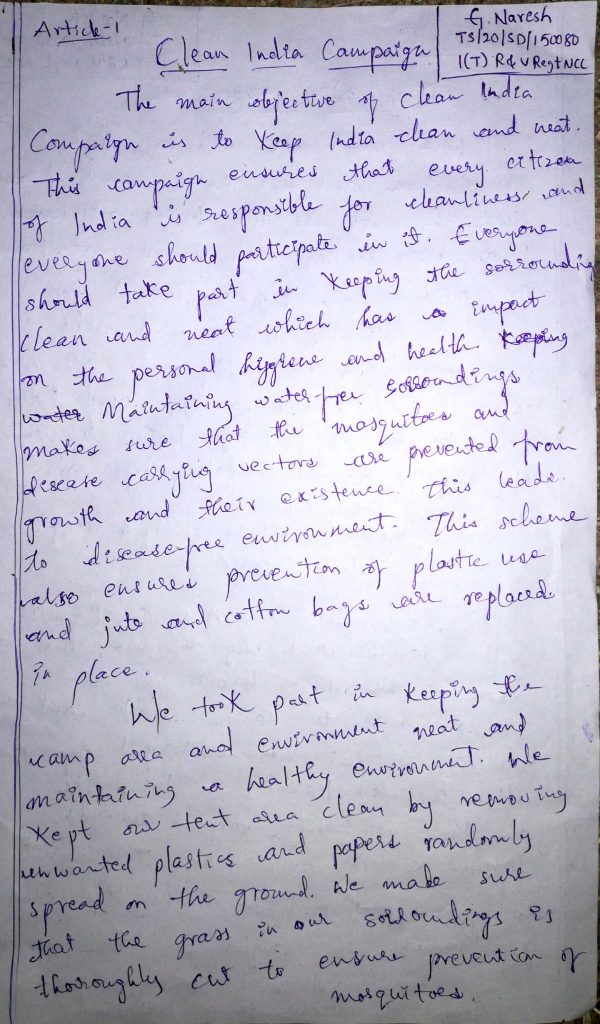 Article-1
G. Naresh
TS/20/SD/150080
1(T) R&V Regt NCC
Clean India Campaign
The main objective of clean India
Compaign is to keep India clean and neat.
This campaign ensures that every citizen
of India is responsible for cleanliness and
everyone should participate in it. Everyone
should take part in keeping the sorrounding
clean and neat which has a impact
on the personal hygiene and health. Keeping
water Maintaining water-free sorroundings
makes sure that the mosquitoes and
disease carrying vectors are prevented from
growth and their existence. This leads
to disease-free environment. This scheme
also ensures prevention of plastic use
and jute and cotton bags are replaced
in place.
We took part in keeping the
camp area and environment neat and
maintaining a healthy environment. We
kept our tent area clean by removing
unwanted plastics and papers randomly
spread on the ground. We made sure
that the grass in our sorroundings is
thoroughly cut to ensure prevention of
mosquitoes.